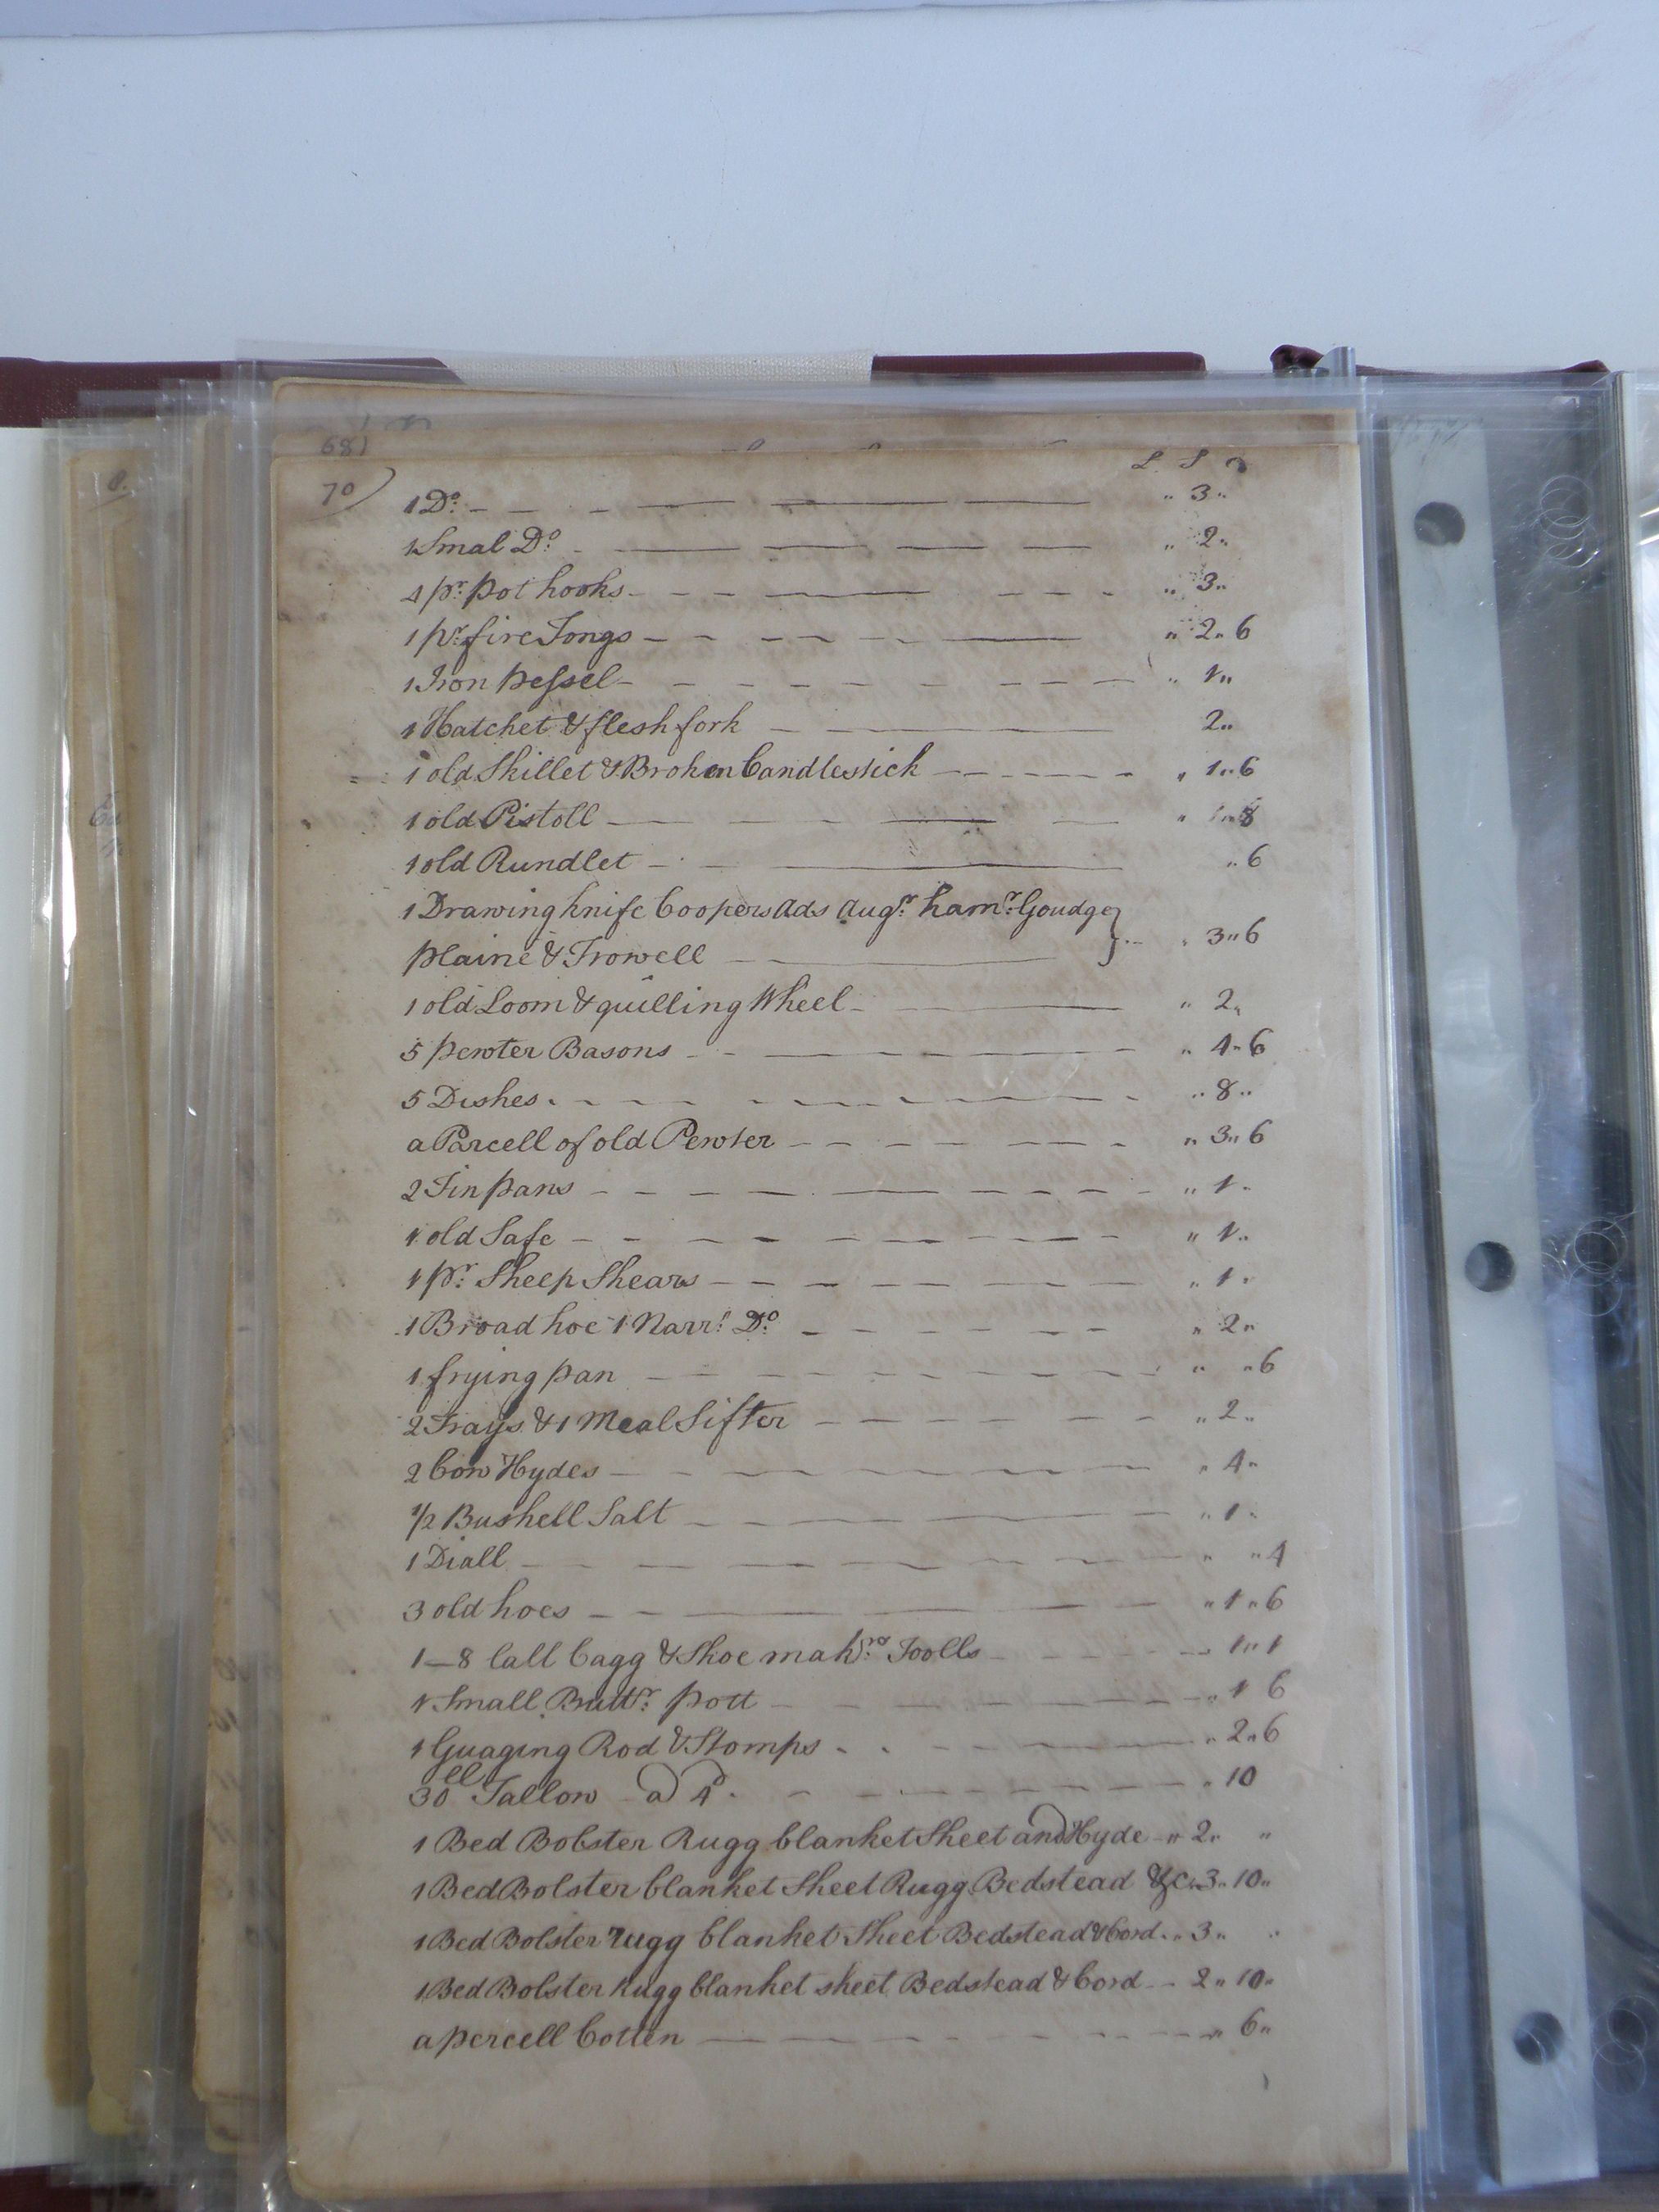 68)
L S D
70) 1 Do. „ 3 „
1 Smal Do. „ 2 „
4 pr. Pot hooks „ 3 „
1 pr. fire Tongs „ 2 „ 6
1 Iron Pessel „ 1 „
1 Hatchet & flesh fork 2 „
1 old Skillet & Broken Candlestick „ 1 „ 6
1 old Pistoll „ 1 „ 8
1 old Rundlet „ 6
1 Drawing knife Coopers Ads Augr. hamr. Goudge
Plaine & Trowell „ 3 „ 6
1 old Loom & quilling Wheel „ 2 „
5 Pewter Basons „ 4 „ 6
5 Dishes „ 8 „
a Parcell of old Pewter „ 3 „ 6
2 Tin Pans „ 1 „
1 old Safe „ 1 „
1 pr. Sheep Shears „ 1 „
1 Broad hoe 1 Narr. Do. „ 2 „
1 frying Pan „ „ 6
2 Trays & 1 Meal Sifter „ 2 „
2 Cow Hydes „ 4 „
1/2 Bushell Salt „ 1 „
1 Diall „ „ 4
3 old hoes „ 1 „ 6
1 — 8 Call Cagg & Shoe makrs. Toolls 1 „ 1
1 Small Buttr. Pott „ 1 6
1 Guaging Rod & Stomps „ 2 „ 6
30 ll Tallow a 4d. „ 10
1 Bed Bolster Rugg blanket Sheet and Hyde „ 2 „ „
1 Bed Bolster blanket Sheet Rugg Bedstead &c „ 3 „ 10 „
1 Bed Bolster rugg blanket Sheet Bedstead & Cord „ 3 „ „
1 Bed Bolster Rugg blanket sheet Bedstead & Cord 2 „ 10 „
a Percell Cotten „ 6 „